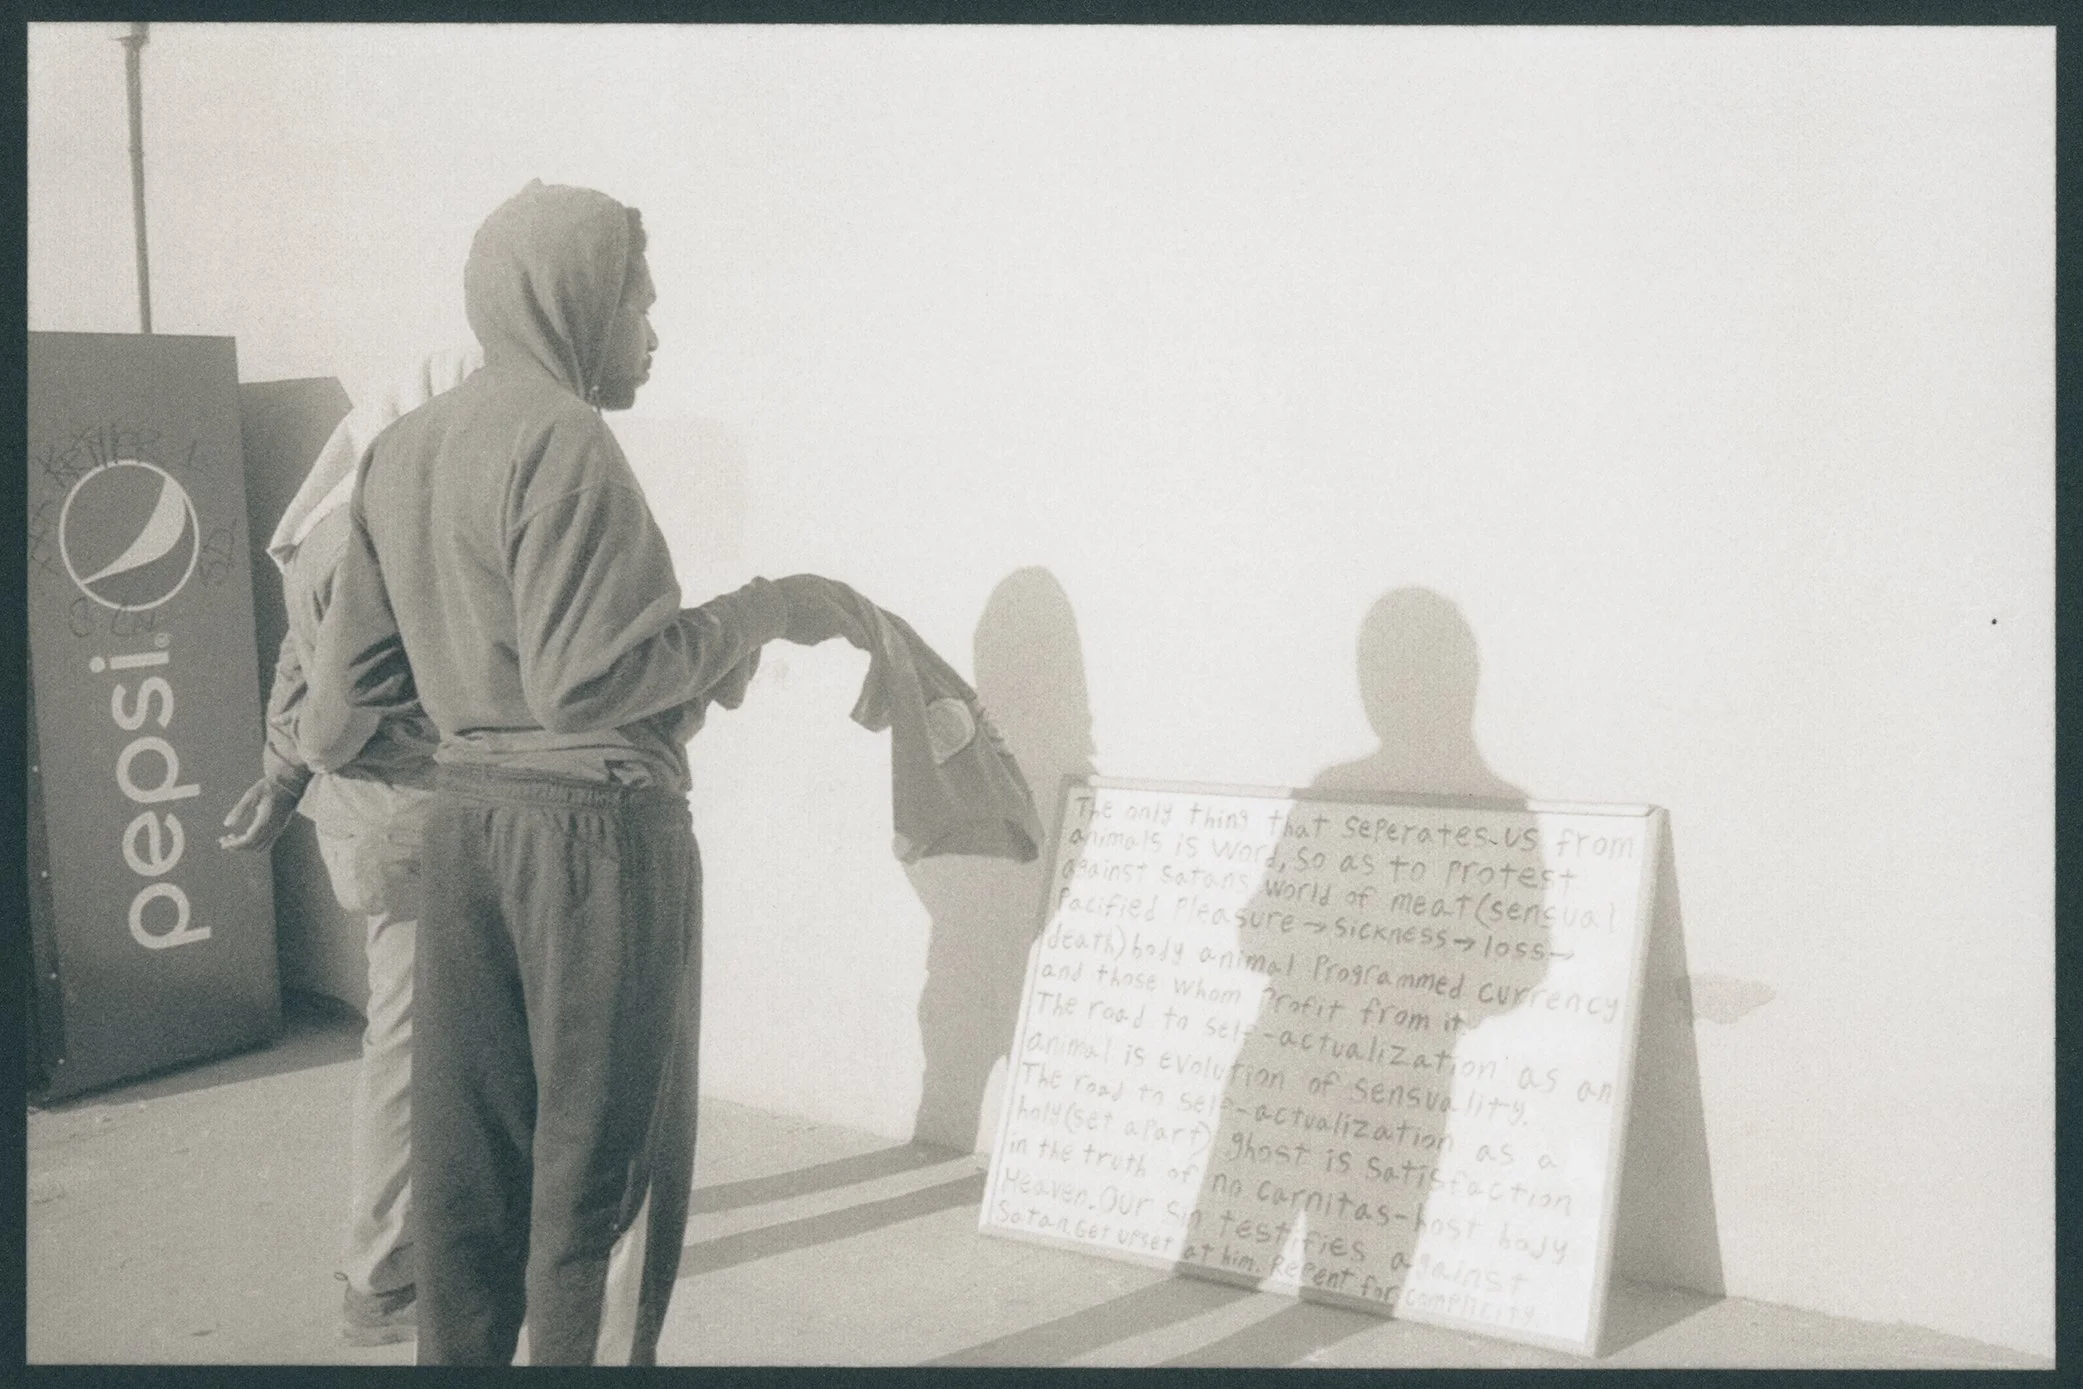 pepsi
The only thing that seperates us from
animals is word, so as to protest
against satans world of meat (sensual
Pacified Pleasure → sickness → loss →
death) body animal Programmed currency
and those whom Profit from it
The road to self-actualization as an
animal is evolution of sensuality.
The road to self-actualization as a
holy (set apart) ghost is satisfaction
in the truth of no carnitas-host body
Heaven. Our sin testifies against
Satan. Get upset at him. Repent for complicity.